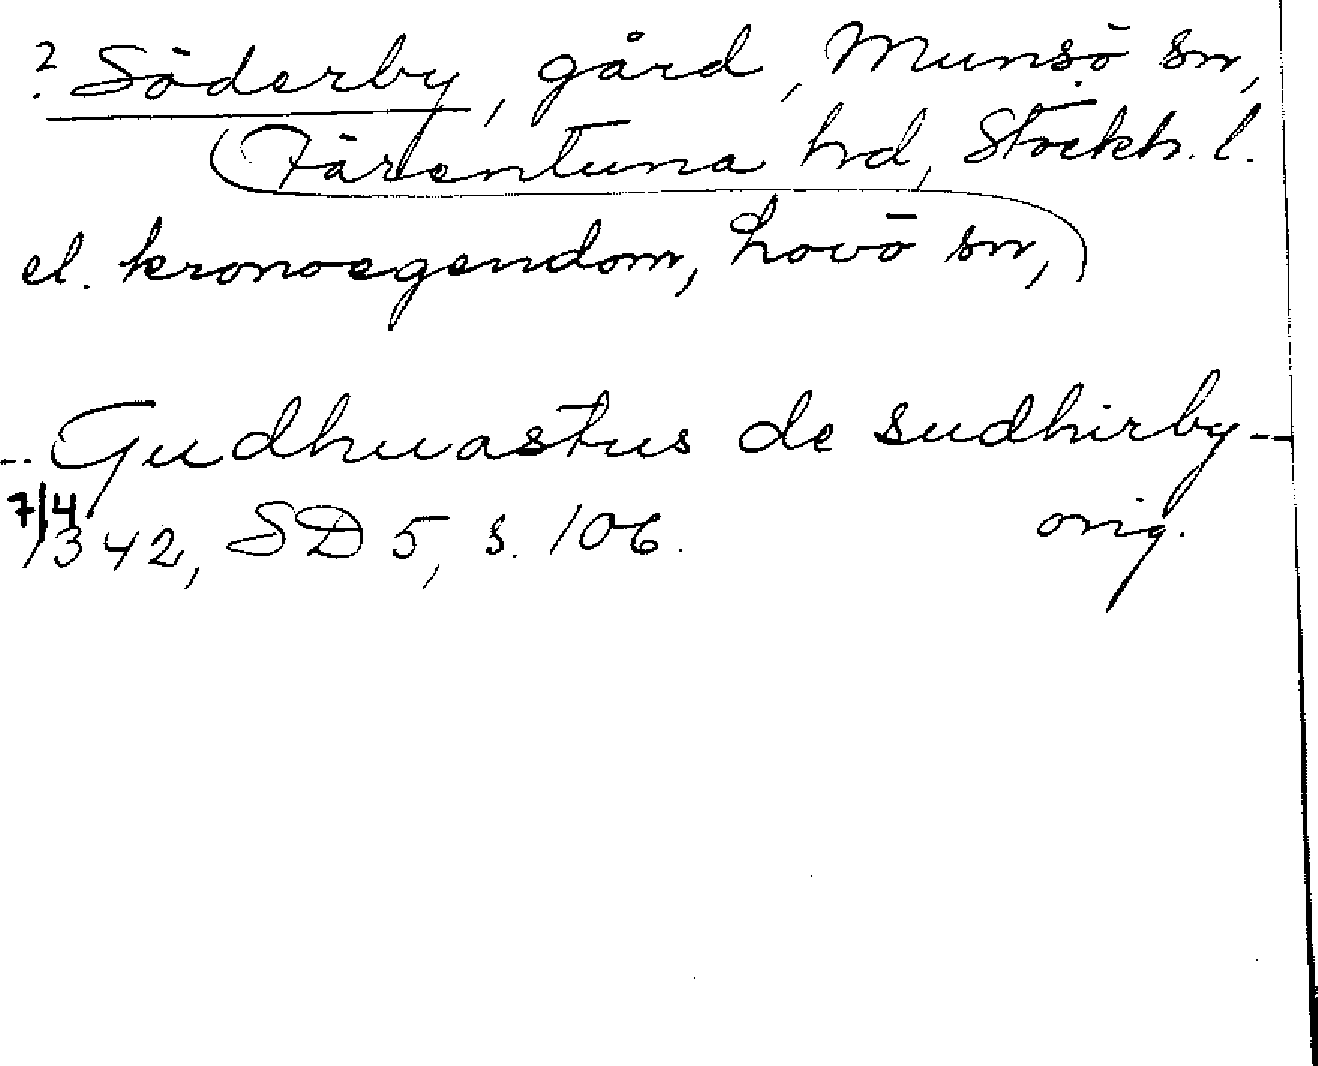 ? Söderby, gård, Munsö sn,
Färentuna hd, Stockh. l.
el. kronoegendom, Lovö sn,
-- Gudhuastus de sudhirby --
7/4
1342, SD 5, s. 106. orig.